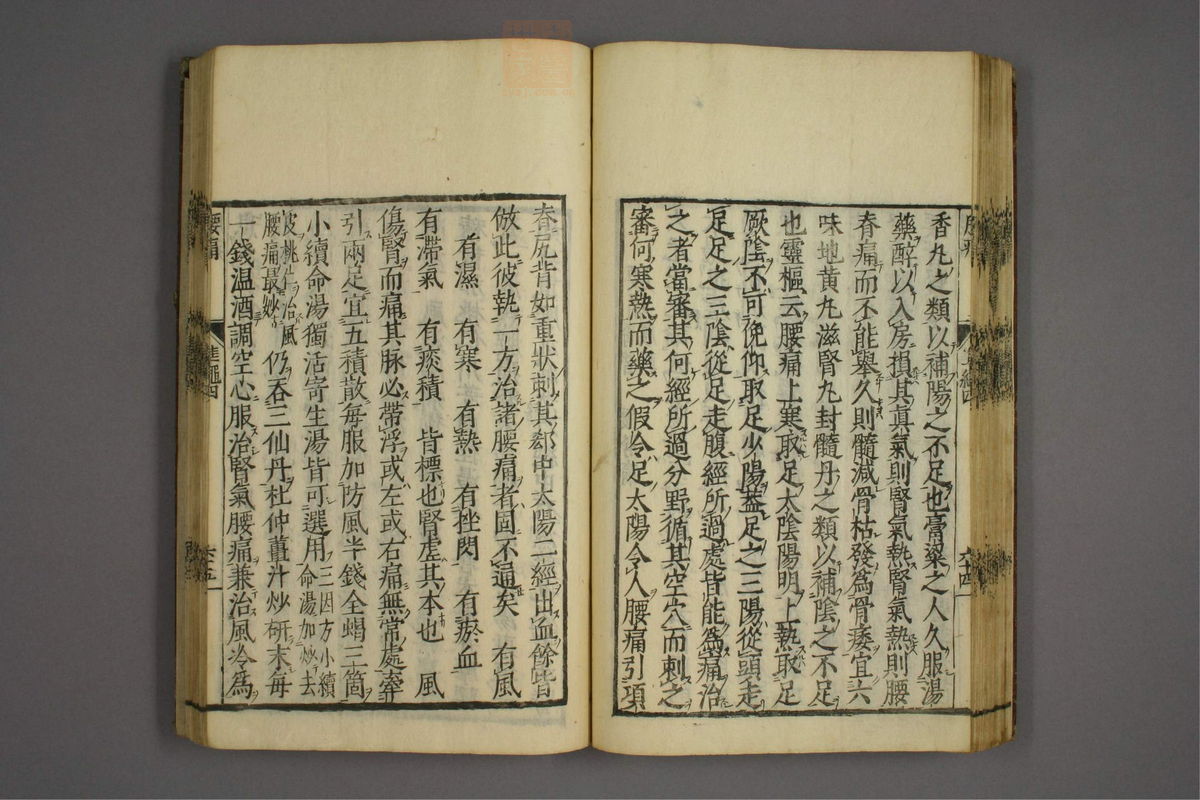 香丸之類以補陽之不足也膏粱之人久服湯
藥醉以入房損其真氣則腎氣熱腎氣熱則腰
脊痛而不能舉久則髓減骨枯發爲骨痿宜六
味地黄丸滋腎丸封髓丹之類以補陰之不足
也靈樞云腰痛上寒取足太陰陽明上熱取足
厥陰不可俛仰取足少陽蓋足之三陽從頭走
足足之三陰從足走腹經所過處皆能爲痛治
之者當審其何經所過分野循其空穴而刺之
審何寒熱而藥之假令足太陽令人腰痛引項
脊尻背如重狀刺其郄中太陽二經出血餘皆
倣此彼執一方治諸腰痛者固不通矣 有風
有濕 有寒 有熱 有挫閃 有瘀血
有滯氣 有痰積 皆標也腎虛其本也 風
傷腎而痛其脉必帶浮或左或右痛無常處牽
引兩足宜五積散每服加防風半錢全蝎三箇
小續命湯獨活寄生湯皆可選用三因方小續命湯加炒去
皮桃仁治風腰痛最妙仍吞三仙丹杜仲薑汁炒研末每
一錢温酒調空心服治腎氣腰痛兼治風冷爲
腰痛
六十四
六十五